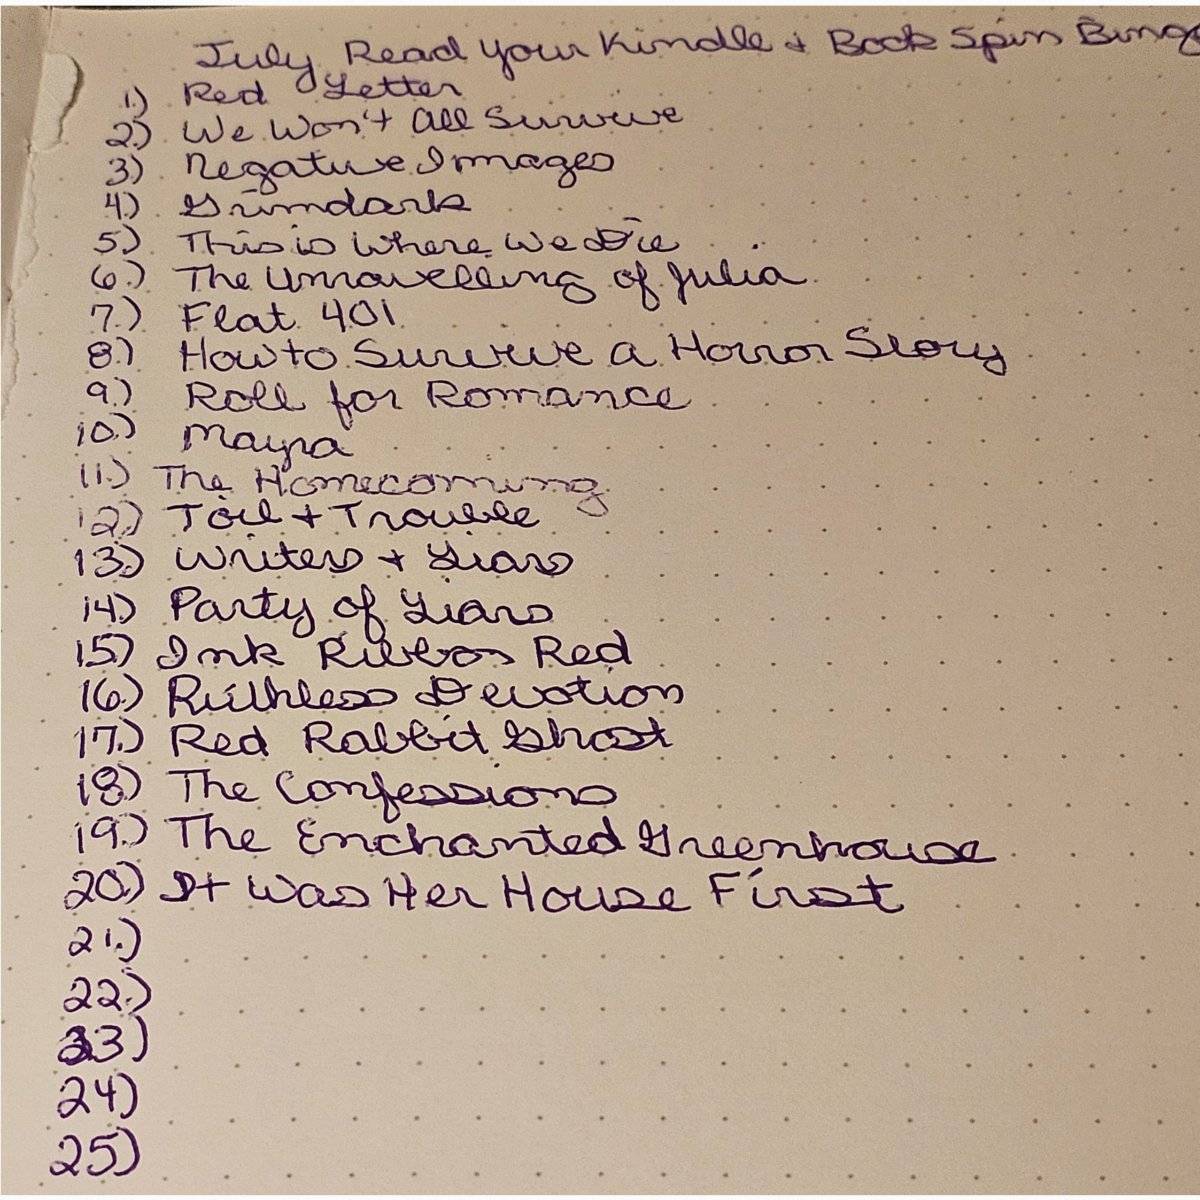 July Read Your Kindle + Book Spin Bingo
1.) Red Letter
2.) We Won't All Survive
3) Negative Images
4.) Grimdark
5.) This is Where We Die
6.) The Unravelling of Julia
7.) Flat 401
8.) How to Survive a Horror Story
9.) Roll for Romance
10.) Mayra
11.) The Homecoming
12.) Toil + Trouble
13.) Writers + Liars
14) Party of Liars
15.) Ink Ribbon Red
16.) Ruthless Devotion
17.) Red Rabbit Ghost
18.) The Confessions
19.) The Enchanted Greenhouse
20.) It Was Her House First
21.)
22.)
23)
24)
25)